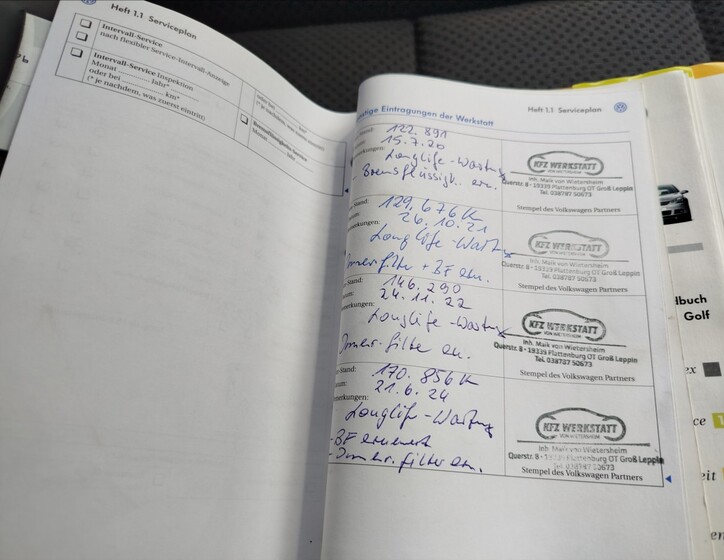 Heft 1.1 Serviceplan
Intervall-Service
nach flexibler Service-Intervall-Anzeige
Intervall-Service Inspektion
Monat Jahr*
oder bei km*
(* je nachdem, was zuerst eintritt)
Heft 1.1 Serviceplan
Eintragungen der Werkstatt
Stand: 122.891
15.7.20
Longlife-Wartung
- Bremsflüssigk. ern.
KFZ WERKSTATT
VON WIETERSHEIM
Inh. Maik von Wietersheim
Querstr. 8 · 19339 Plattenburg OT Groß Leppin
Tel. 038787 50673
Stempel des Volkswagen Partners
Stand: 129.676 K
26.10.21
Longlife-Wartung
Innenfilter + BF ern.
KFZ WERKSTATT
VON WIETERSHEIM
Inh. Maik von Wietersheim
Querstr. 8 · 19339 Plattenburg OT Groß Leppin
Tel. 038787 50673
Stempel des Volkswagen Partners
Stand: 146.290
24.11.22
Longlife-Wartung
Innenr. filter ern.
KFZ WERKSTATT
VON WIETERSHEIM
Inh. Maik von Wietersheim
Querstr. 8 · 19339 Plattenburg OT Groß Leppin
Tel. 038787 50673
Stempel des Volkswagen Partners
Stand: 170.856 K
21.6.24
Longlife-Wartung
- BF erneuert
- Innenr. filter ern.
KFZ WERKSTATT
VON WIETERSHEIM
Inh. Maik von Wietersheim
Querstr. 8 · 19339 Plattenburg OT Groß Leppin
Tel. 038787 50673
Stempel des Volkswagen Partners
Golf